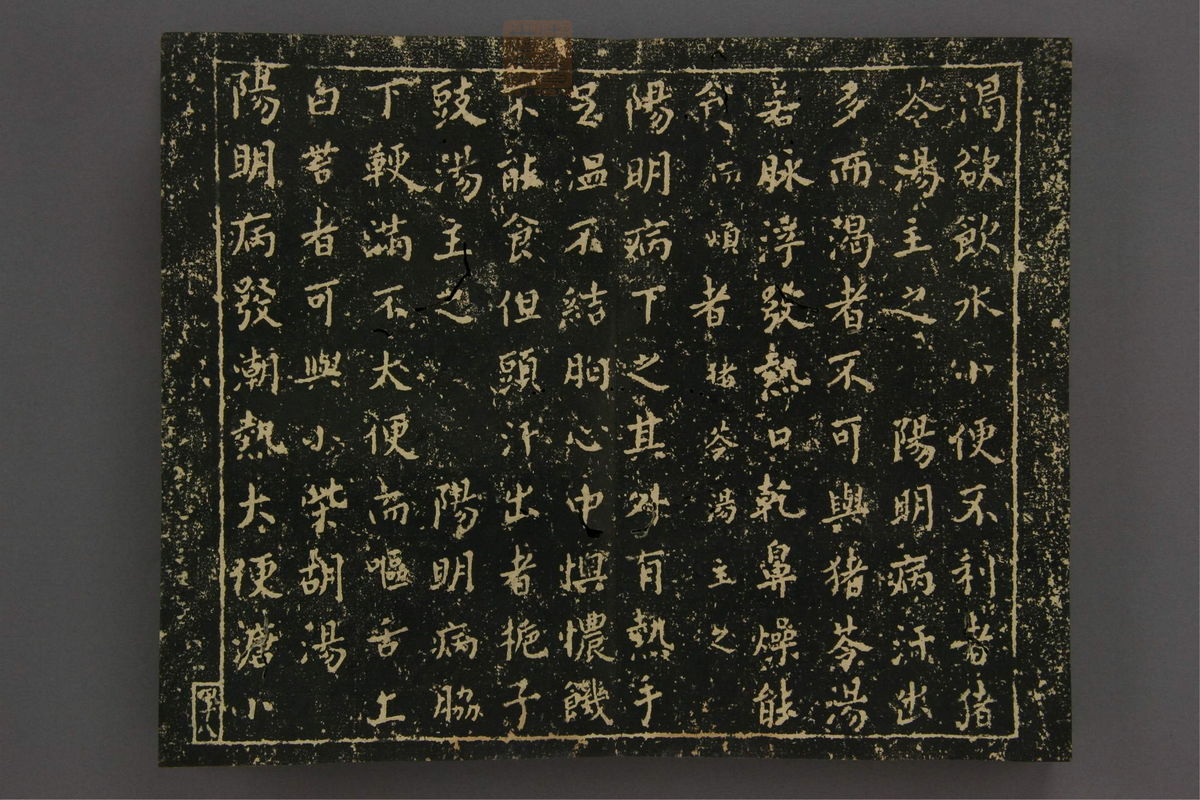 渴欲飲水小便不利者猪
苓湯主之　陽明病汗出
多而渴者不可與猪苓湯
若脉浮發熱口乾鼻燥能
食而煩者猪苓湯主之
陽明病下之其外有熱手
足温不結胸心中懊憹饑
不能食但頭汗出者梔子
豉湯主之　陽明病脇
下鞕滿不大便而嘔舌上
白苔者可與小柴胡湯
陽明病發潮熱大便溏小